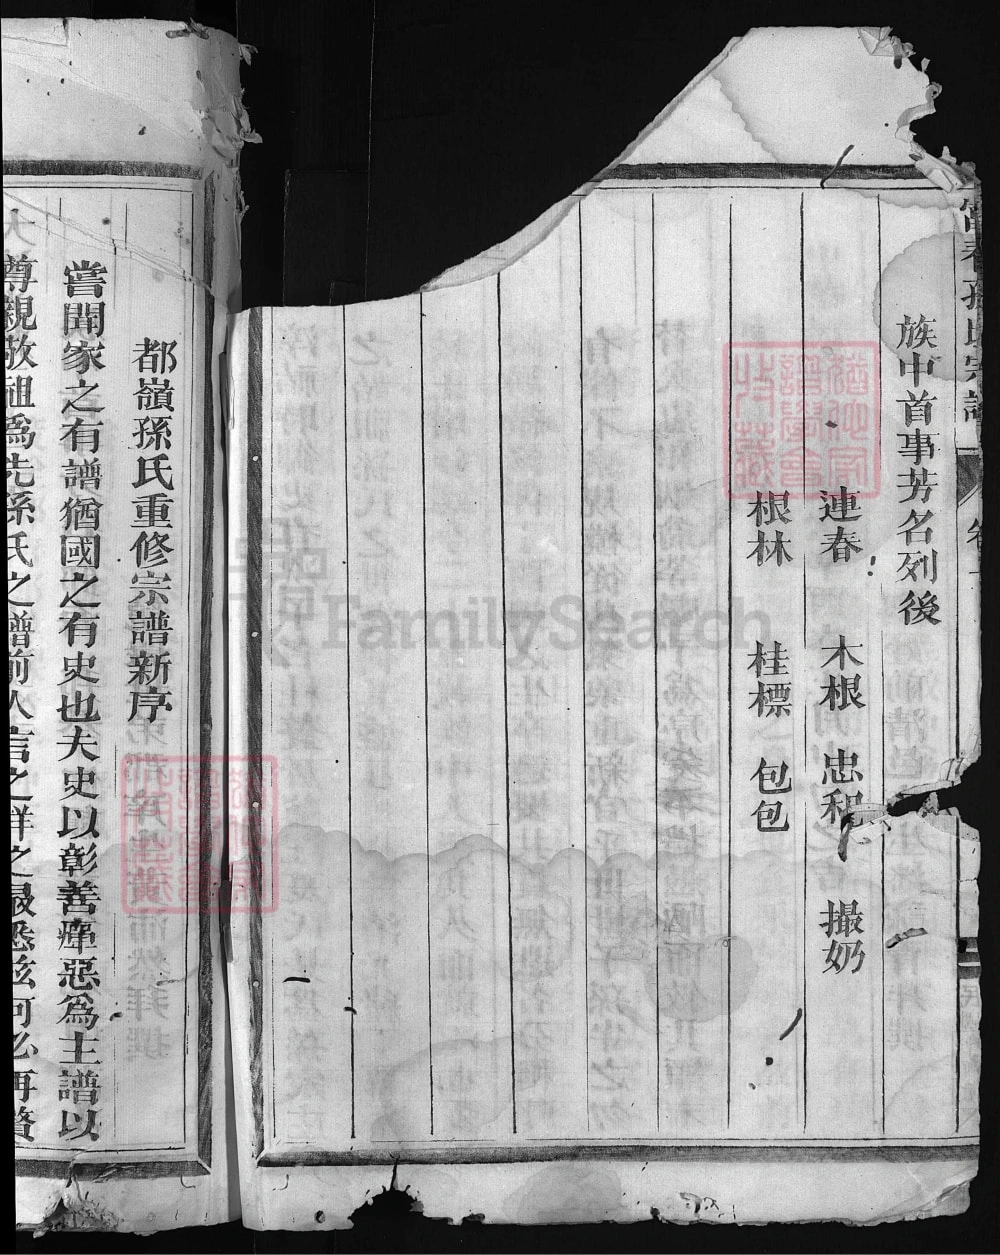 富春孫氏宗譜 卷一
族中首事芳名列後
連春 木根 忠和 撮奶
根林 桂標 包包
都嶺孫氏重修宗譜新序
嘗聞家之有譜猶國之有史也夫史以彰善癉惡為主譜以
尊親敬祖為先孫氏之譜前人言之詳之最悉茲何必再贅
FamilySearch